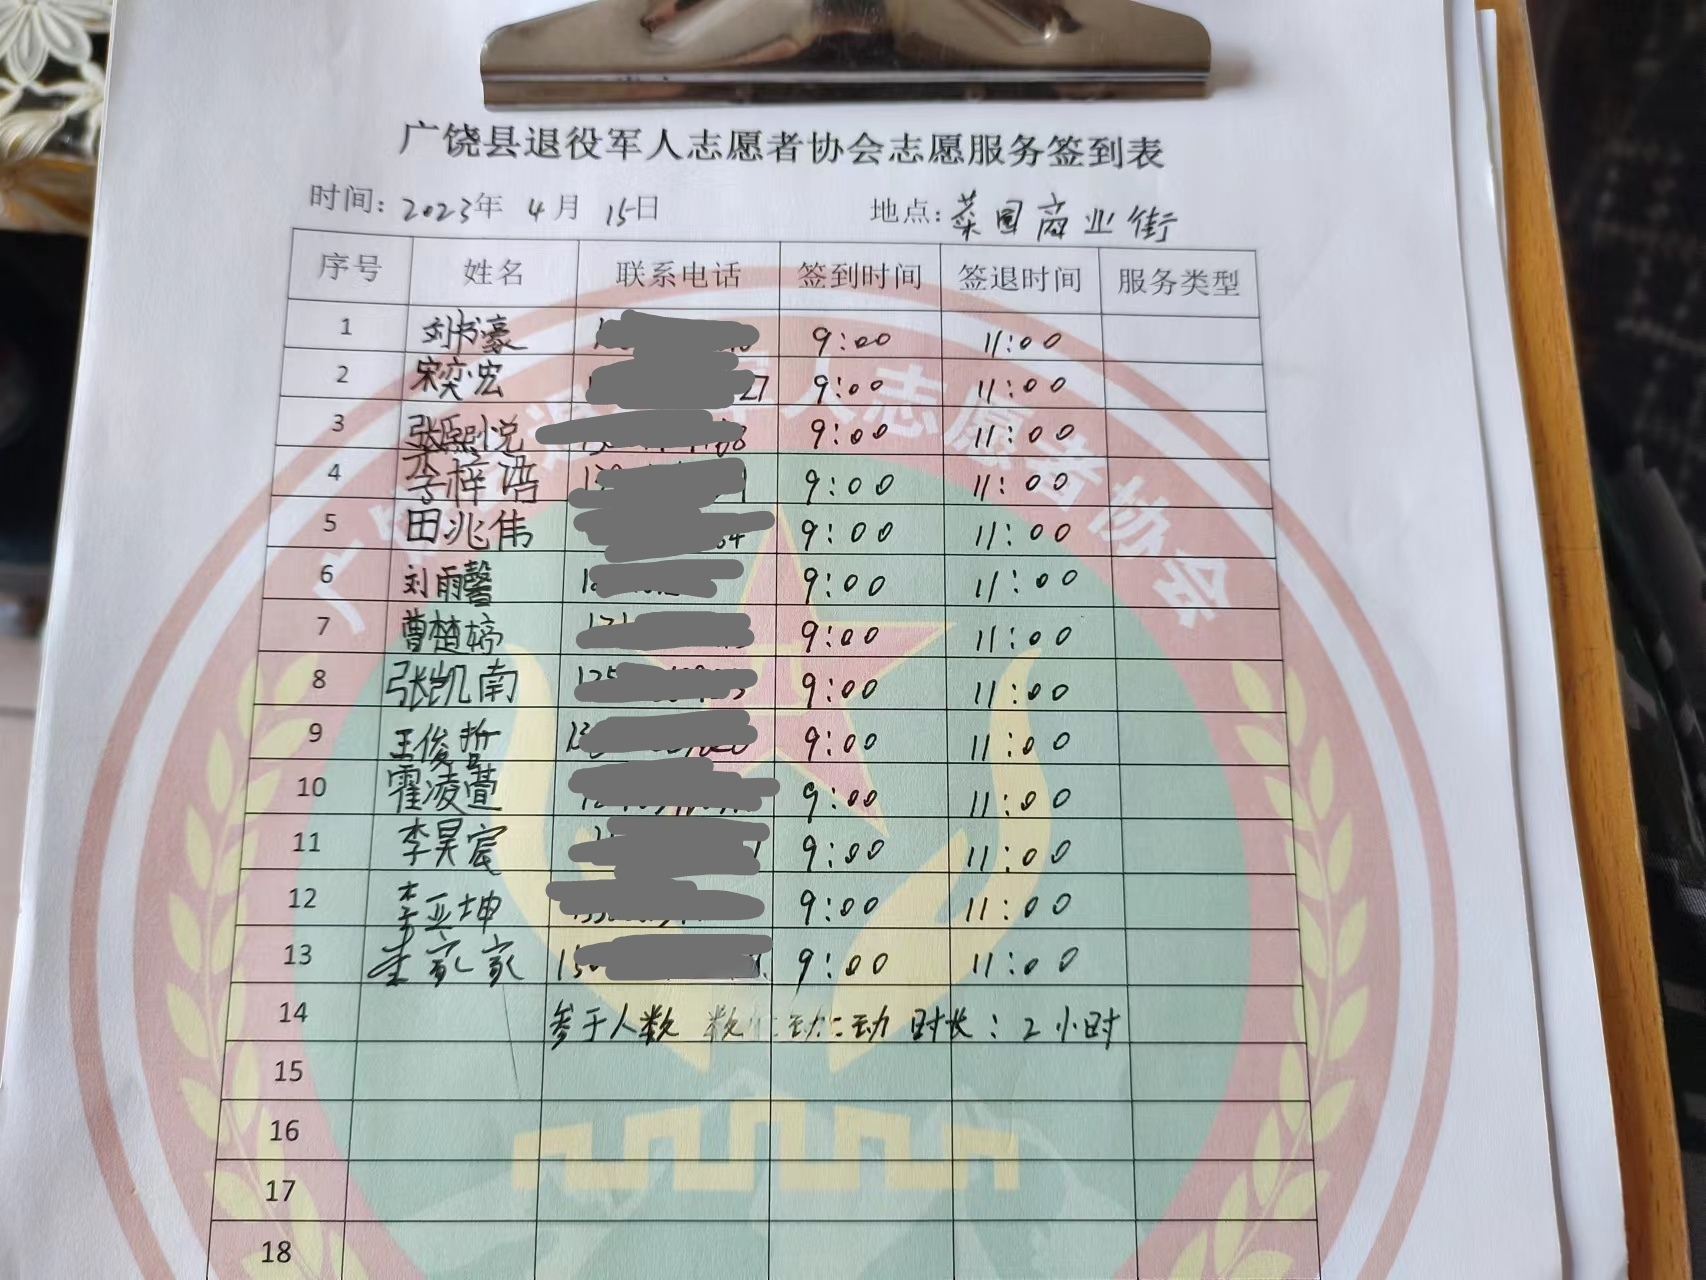 广饶县退役军人志愿者协会志愿服务签到表
时间: 2023年 4月 15日 地点: 菜园商业街
序号 姓名 联系电话 签到时间 签退时间 服务类型
1 刘书豪 9:00 11:00
2 宋奕宏 27 9:00 11:00
3 张熙悦 9:00 11:00
4 李梓浯 9:00 11:00
5 田兆伟 9:00 11:00
6 刘雨馨 9:00 11:00
7 曹楚婷 9:00 11:00
8 张凯南 9:00 11:00
9 王俊哲 9:00 11:00
10 霍凌萱 9:00 11:00
11 李昊宸 9:00 11:00
12 李亚坤 9:00 11:00
13 李家家 9:00 11:00
14 参于人数 时长: 2小时
15
16
17
18
广饶县退役军人志愿者协会